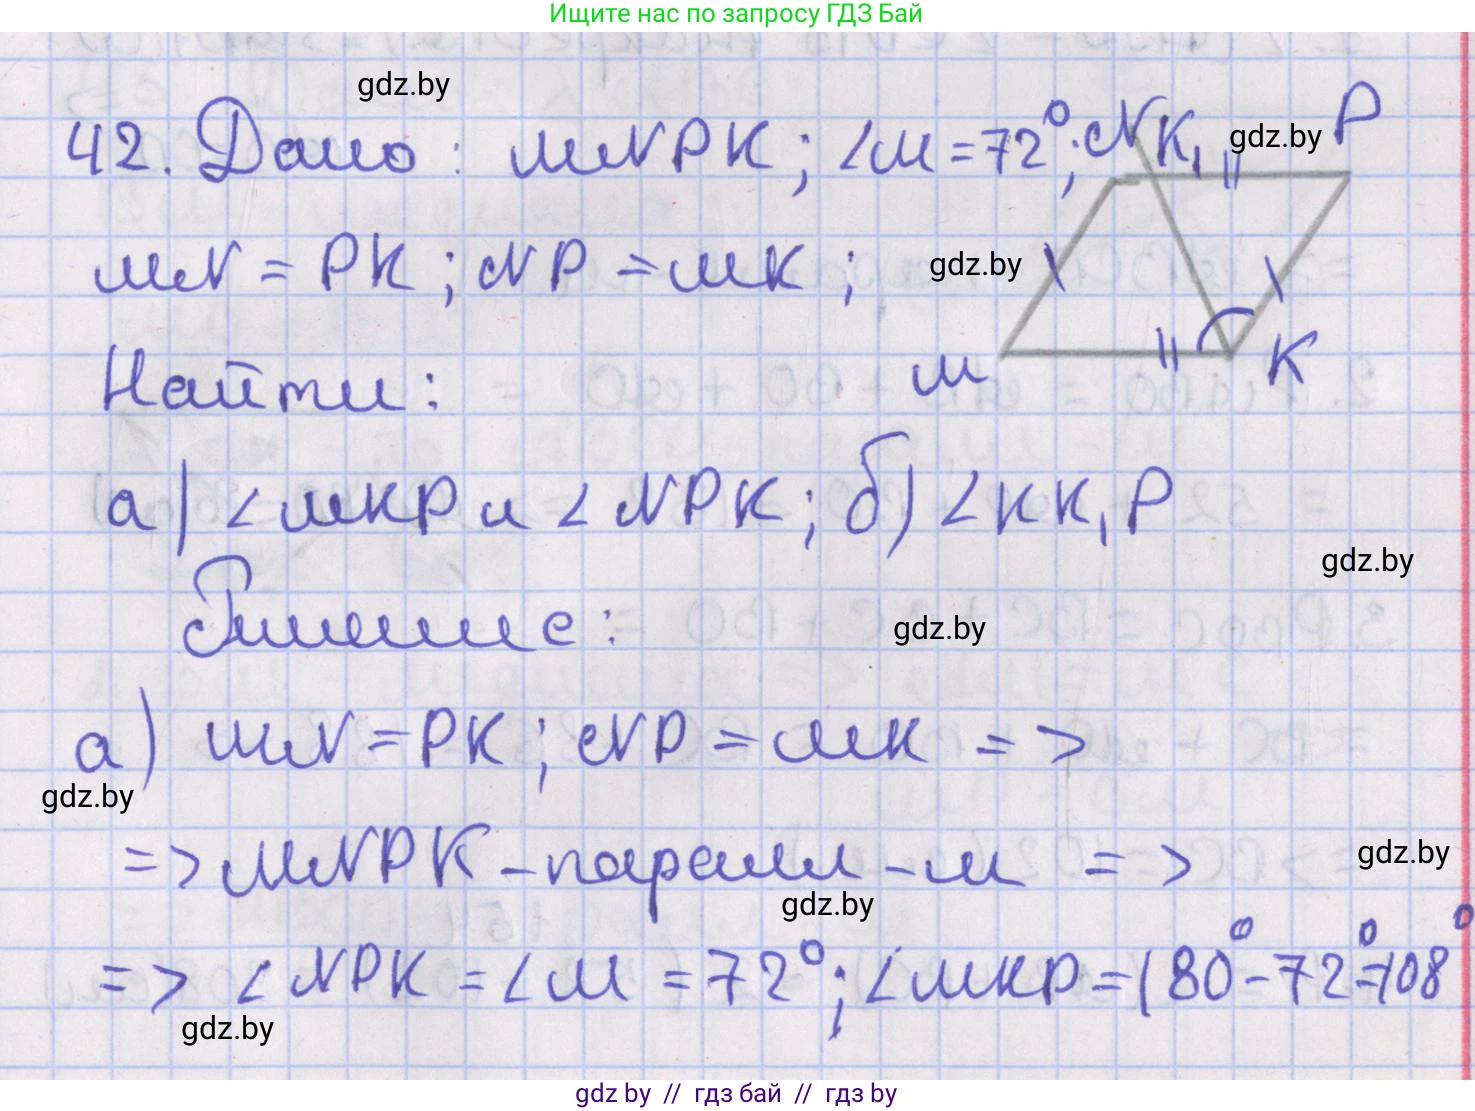 Ищите нас по запросу ГДЗ Бай
gdz.by
42. Дано: MNPK; ∠M = 72°; N K₁ gdz.by P
MN = PK; NP = MK; gdz.by
Найти: M K
а) ∠MKP и ∠NPK; б) ∠KK₁P
gdz.by
Решение: gdz.by
а) MN = PK; NP = MK =>
gdz.by
=> MNPK - паралл-м => gdz.by
gdz.by
=> ∠NPK = ∠M = 72°; ∠MKP = 180° - 72° = 108°
gdz.by
gdz by // гдз бай // гдз by